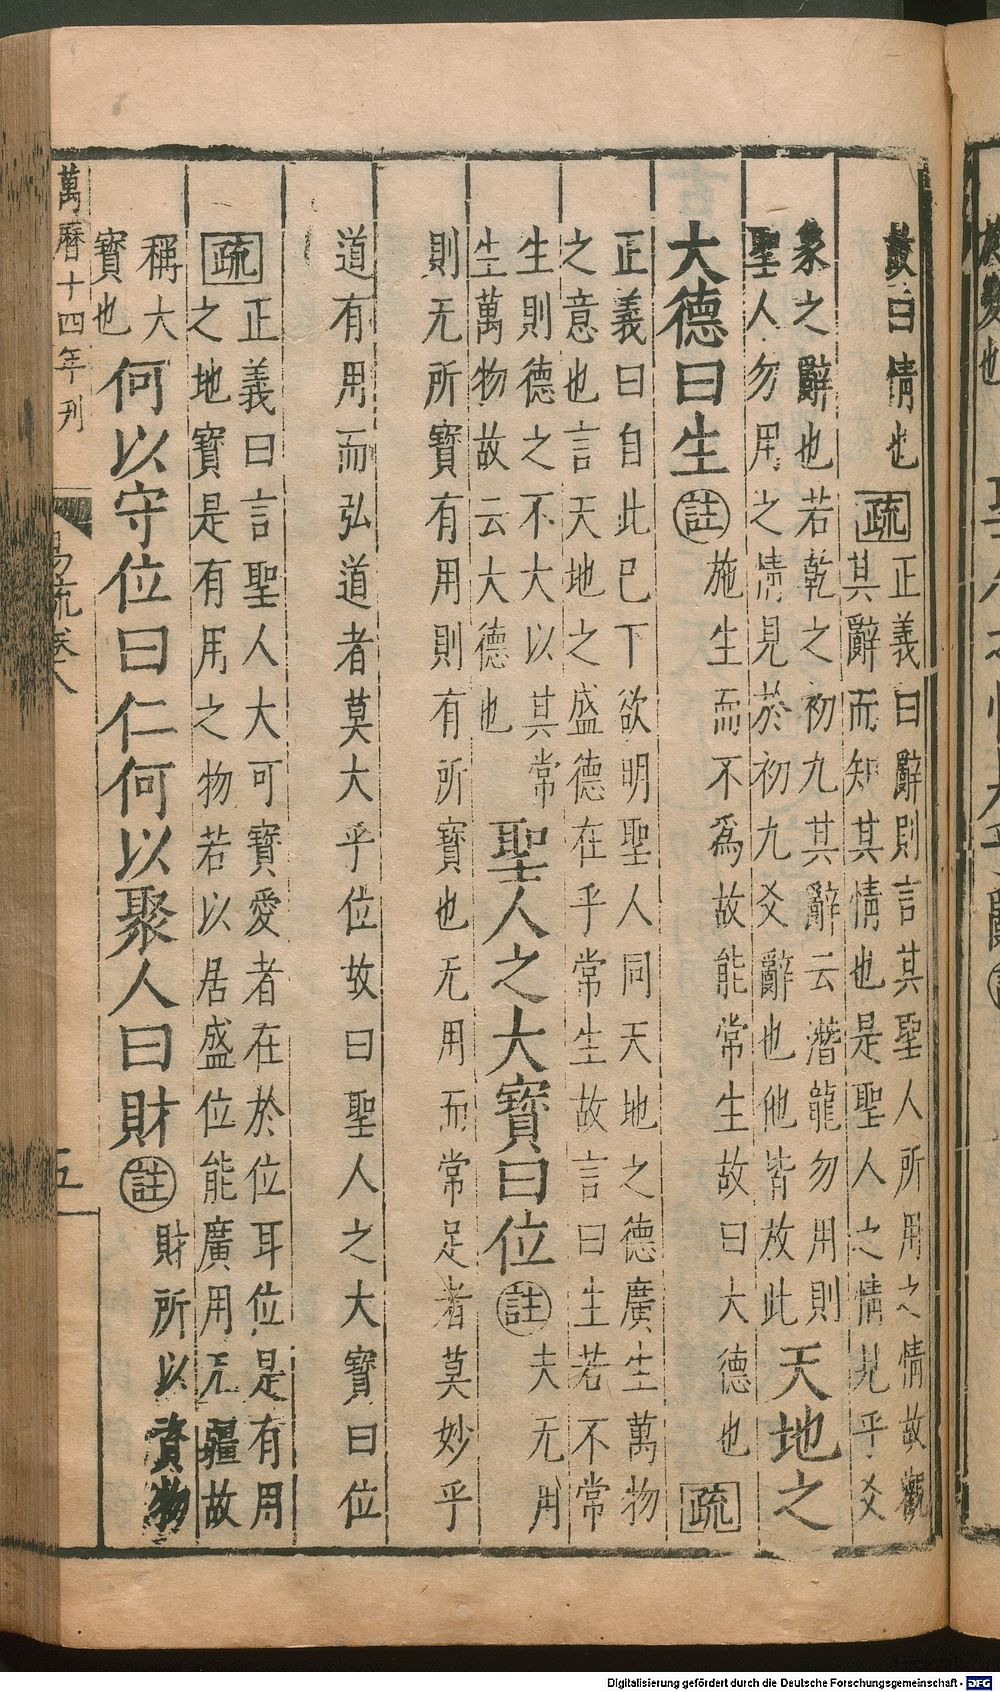 故曰情也疏正義曰辭則言其聖人所用之情故觀
其辭而知其情也是聖人之情見乎爻
象之辭也若乾之初九其辭云潛龍勿用則
聖人勿用之情見於初九爻辭也他皆放此天地之
大德曰生註施生而不爲故能常生故曰大德也疏
正義曰自此已下欲明聖人同天地之德廣生萬物
之意也言天地之盛德在乎常生故言曰生若不常
生則德之不大以其常
生萬物故云大德也聖人之大寶曰位註夫无用
則无所寶有用則有所寶也无用而常足者莫妙乎
道有用而弘道者莫大乎位故曰聖人之大寶曰位
疏正義曰言聖人大可寶愛者在於位耳位是有用
之地寶是有用之物若以居盛位能廣用无疆故
稱大
寶也何以守位曰仁何以聚人曰財註財所以資物
萬曆十四年刊
易疏卷八
五
Digitalisierung gefördert durch die Deutsche Forschungsgemeinschaft - DFG